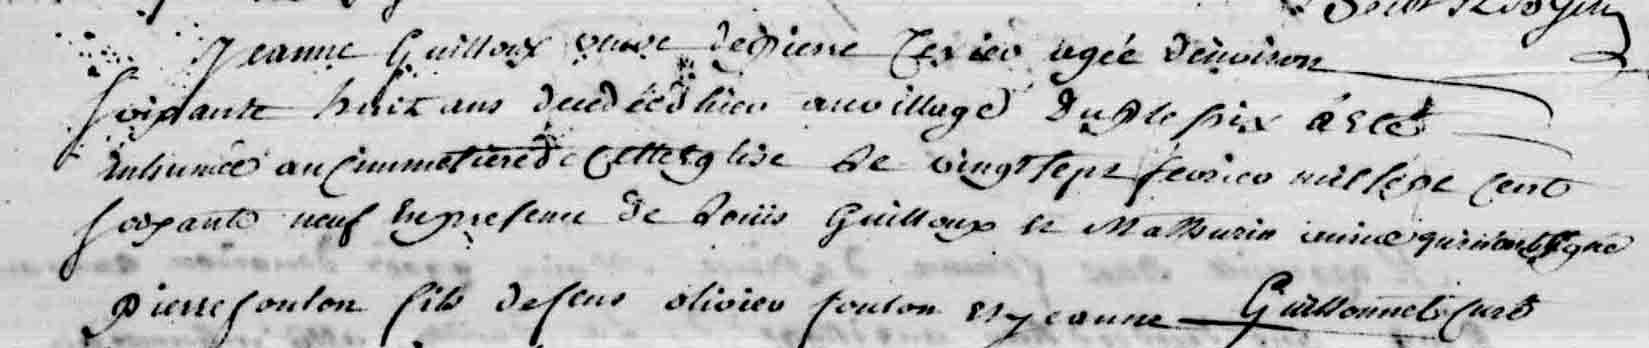 Jeanne Guilloux veuve de pierre texier agée denviron
soixante huit ans decedée hier au village du plessix a esté
inhumée au cimmetiere de cette eglise le vingt sept fevrier mil sept cent
soixante neuf en presence de Louis Guilloux et Mathurin qui n'ont signé
Guillonnet curé
pierre foulon fils de feus olivier foulon et jeanne